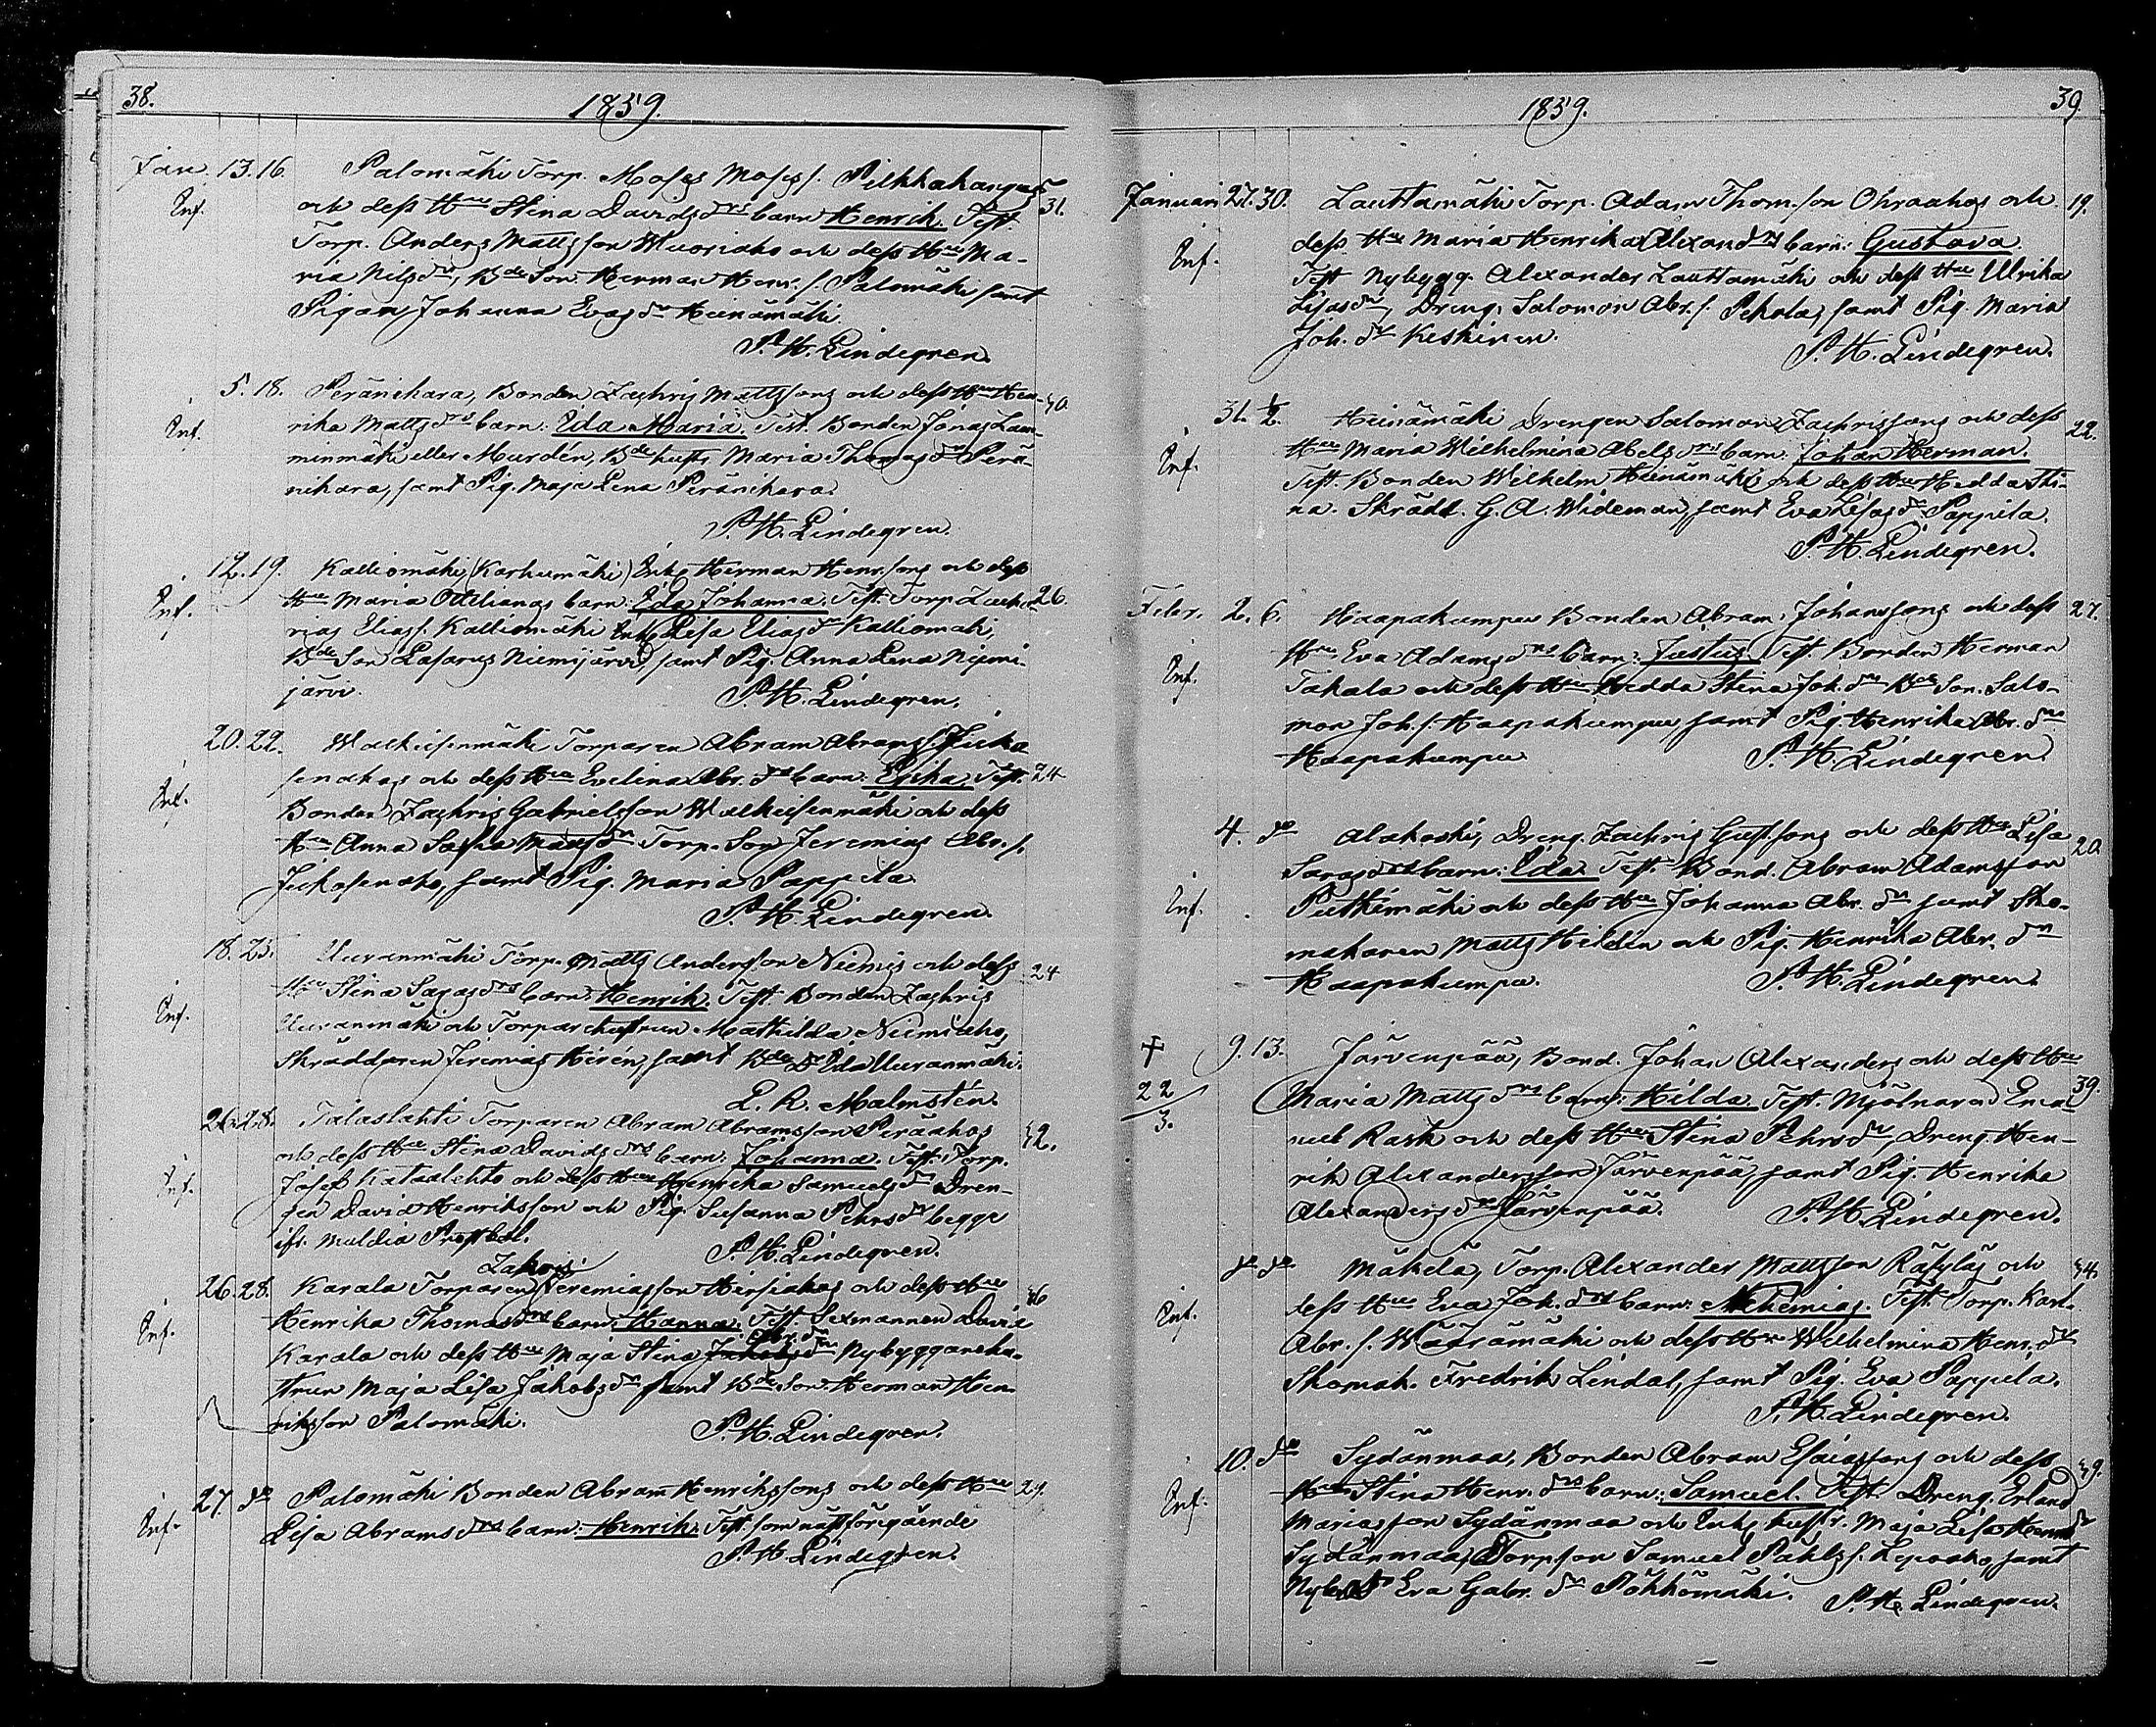 38.
1859.
Jan. 13. 16. Palomäki Torp. Moses Moses s. Pilkkakangas 31.
Inf. och dess Hu Stina Davids drs barn Henrik. Test.
Torp. Anders Mattsson Wuoriaho och dess Hu Ma-
ria Nils dr, Bde Son Herman Henr. s. Palomäki samt
Pigan Johanna Evas dr Heinämäki.
P. H. Lindegren.
5. 18. Peränehara, Bonden Zachris Mattssons och dess Hu Hen- 40.
Inf. rika Matts drs barn: Eda Maria. Test. Bonden Jonas Lam-
minmäki eller Murdén, Bde hustr. Maria Thomas dr Perä-
nehara, samt Pig. Maja Lena Peränehara.
P. H. Lindegren.
12. 19. Kalliomäki (Karhumäki) Enkl. Herman Henr. sons och dess
Inf. Hu Maria Ottilianas barn: Eda Johanna. Test. Torp Zacha- 26.
rias Elias s. Kalliomäki Lisa Elias dr Kalliomäki,
Bde Son Lasarus Niemijärvi, samt Pig. Anna Lena Niemi-
järvi. P. H. Lindegren.
20. 22. Walkeisenmäki Torparen Abram Abrams s. Juka
Inf. senahos och dess Hu Evelina Abr. drs barn: Esska. Test. 24
Bonden Zachris Gabrielsson Walkeisenmäki och dess
Hu Anna Matts dr Torp. Son Jeremias Abr. s.
Jukosenaho, samt Pig. Maria Pappila
P. H. Lindegren.
18. 23. Uuranmäki Torp. Matts Andersson Niemis och dess 24
Inf. Hu Stina Saras drs barn: Henrik. Test. Bonden Zachris
Uuranmäki och Torparehustrun Mathilda Niemiaho,
Skräddaren Jeremias Hirén, samt Bde Dr Eda Uuranmäki.
E. R. Malmstén.
26. 28. Talaslahti Torparen Abram Abramsson Peräahos 42.
Inf. och dess Hu Stina Davids drs barn: Johanna. Test. Torp.
Josef Kataalehto och dess Hu Henrika Samuels dr Dren-
gen David Henriksson och Pig. Susanna Pehrs dr begge
ifr. Muldia Prestbol.
P. H. Lindegren.
Zakris
26. 28. Karala Torparen Jeremiasson Hirsiahos och dess Hu 36
Inf. Henrika Thomas drs barn: Hanna. Test. Sexmannen David
Abr. dr
Karala och dess Hu Maja Stina Jakobs dr Nybyggarehu-
strun Maja Lisa Jakobs dr samt Bde Son Herman Hen
riksson Palomäki. P. H. Lindegren.
27. do Palomäki Bonden Abram Henrikssons och dess Hu 29.
Inf. Lisa Abrams drs barn: Henrik. Test. som nästföregående
P. H. Lindegren.
39.
1859.
Januari 27. 30. Lauttamäki Torp. Adam Thom. son Ohraahos och 19.
Inf. dess Hu Maria Henrika Alexand drs barn: Gustava.
Test Nybygg. Alexander Lauttamäki och dess Hu Ulrika
Lisas dr, Dreng. Salomon Abr. s. Pekola, samt Pig. Maria
Joh. dr Keskinen. P. H. Lindegren.
31. 1/2. Heinämäki Drengen Salomon Zachrissons och dess 22.
Inf. Hu Maria Wilhelmina Abels drs barn: Johan Herman.
Test. Bonden Wilhelm Heinämäki och dess Hu Hedda Sti-
na. Skrädd. G. A. Wideman, samt Eva Lisas dr Pappila.
P. H. Lindegren.
Febr. 2. 6. Haapakumpu Bonden Abram Johanssons och dess 27.
Inf. Hu Eva Adams drs barn: Justus. Test. Bonden Herman
Takala och dess Hu Hedda Stina Joh. dr Bde Son. Salo-
mon Joh. s. Haapakumpu samt Pig. Henrika Abr. dr
Haapakumpu P. H. Lindegren.
4. do Alakoski, Dreng. Zachris Gustssons och dess Hu Lisa 20
Inf. Saras drs barn: Eda. Test. Bond. Abram Adamsson
Peltkimäki och dess Hu Johanna Abr. dr samt Sko-
makaren Matts Hildén och Pig. Henrika Abr. dr
Haapakumpu. P. H. Lindegren.
+ 22/3. 9. 13. Järvenpää, Bond. Johan Alexanders och dess Hu
Maria Matts drs barn: Hilda. Test. Mjölnaren Ema- 39.
nuel Rask och dess Hu Stina Pehrs dr, Dreng. Hen-
rik Alexandersson Järvenpää, samt Pig. Henrika
Alexanders dr Järvenpää. P. H. Lindegren.
do do Mäkelä, Torp. Alexander Mattsson Räsyläs och 34.
Inf. dess Hu Eva Joh. drs barn: Nehemias. Test. Torp. Karl.
Abr. s. Wäärämäki och dess Hu Wilhelmina Henr. dr
Skomak. Fredrik Lindal, samt Pig. Eva Pappila.
P. H. Lindegren.
10. do Sydänmaa, Bonden Abram Esaiassons och dess 39.
Inf. Hu Stina Henr. drs barn: Samuel. Test. Dreng. Erland
Mariasson Sydänmaa och Enkl. hustr. Maja Lisa
Sydänmaa, Torpson Samuel Pahls s. samt
Eva Gabr. dr Pökkömäki. P. H. Lindegren.